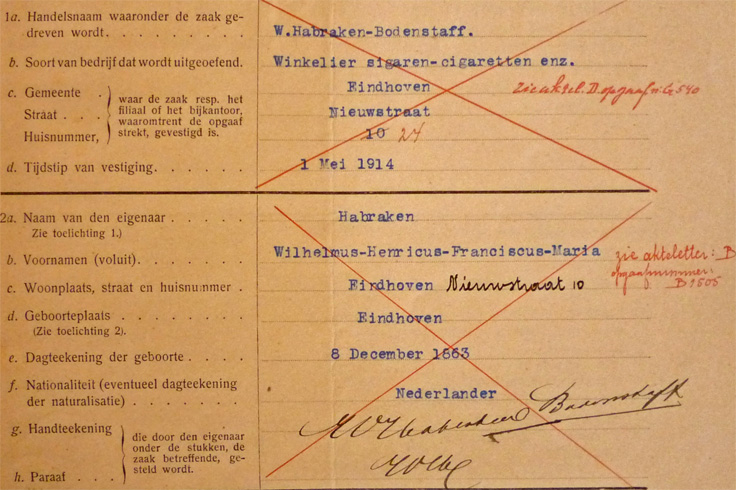 1a. Handelsnaam waaronder de zaak ge-
dreven wordt. . . . . . . . . W.Habraken-Bodenstaff.
b. Soort van bedrijf dat wordt uitgeoefend. Winkelier sigaren-cigaretten enz.
c. Gemeente . waar de zaak resp. het Eindhoven zie aktel. D. opgaaf nr G 540
Straat . . . filiaal of het bijkantoor, waaromtrent de opgaaf Nieuwstraat
Huisnummer, strekt, gevestigd is. 10 24
d. Tijdstip van vestiging. . . . . . 1 Mei 1914
2a. Naam van den eigenaar . . . . . Habraken
Zie toelichting 1.)
b. Voornamen (voluit). . . . . . . Wilhelmus-Henricus-Franciscus-Maria zie akteletter: B
opgaafnummer:
c. Woonplaats, straat en huisnummer . Eindhoven Nieuwstraat 10 B 1505
d. Geboorteplaats . . . . . . . Eindhoven
(Zie toelichting 2).
e. Dagteekening der geboorte . . . . 8 December 1863
f. Nationaliteit (eventueel dagteekening
der naturalisatie) . . . . . . . Nederlander
g. Handteekening die door den eigenaar WHabraken Bodenstaff
onder de stukken, de
zaak betreffende, ge-
h. Paraaf . . . steld wordt.